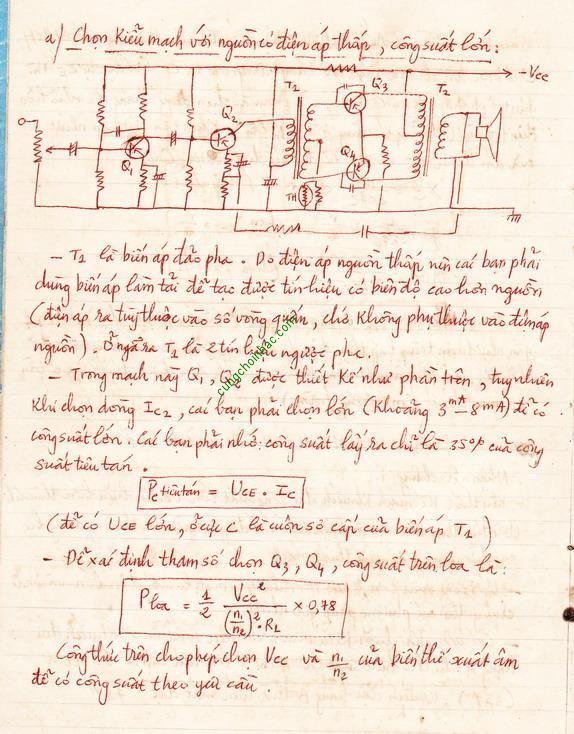 a) Chọn kiểu mạch với nguồn có điện áp thấp, công suất lớn:
-Vcc
T1
Q3
T2
Q2
Q1
Q4
TH
- T1 là biến áp đảo pha. Do điện áp nguồn thấp nên các bạn phải
dùng biến áp làm tải để tạo được tín hiệu có biên độ cao hơn nguồn
(điện áp ra tùy thuộc vào số vòng quấn, chứ không phụ thuộc vào điện áp
nguồn). Ở ngã ra T1 là 2 tín hiệu ngược pha.
cungchoinhac.com
- Trong mạch này Q1, Q2 được thiết kế như phần trên, tuy nhiên
khi chọn dòng Ic2, các bạn phải chọn lớn (khoảng 3mA - 8mA) để có
công suất lớn. Các bạn phải nhớ: công suất lấy ra chỉ là 35% của công
suất tiêu tán.
Pc tiêu tán = UCE . Ic
(để có UCE lớn, ở cực C là cuộn sơ cấp của biến áp T1)
- Để xác định tham số chọn Q3, Q4, công suất trên loa là:
Ploa = 1/2 Vcc²/((n1/n2)².RL) x 0,78
Công thức trên cho phép chọn Vcc và n1/n2 của biến thế xuất âm
để có công suất theo yêu cầu.